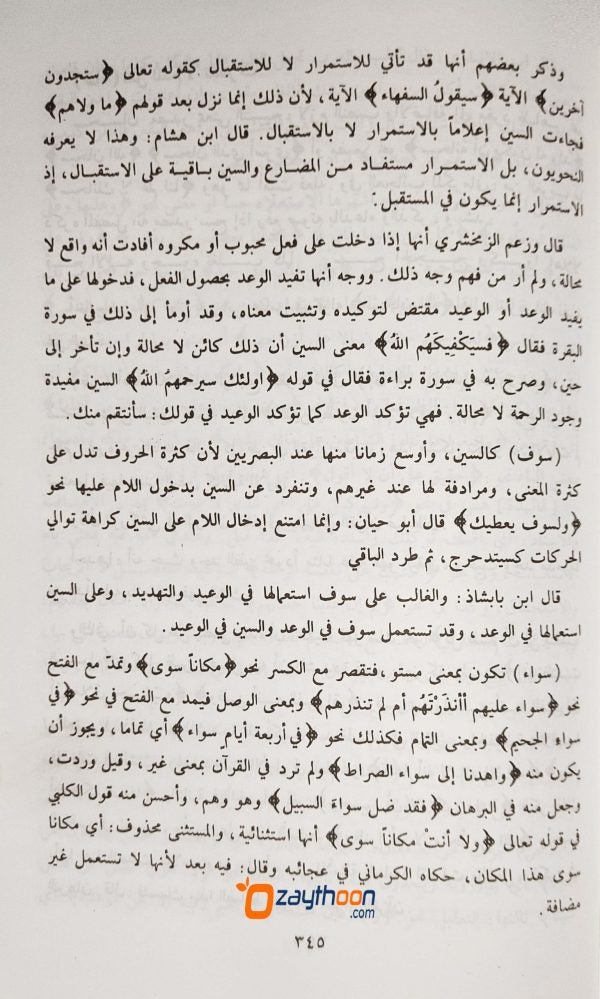 وذكر بعضهم أنها قد تأتي للاستمرار لا للاستقبال كقوله تعالى ﴿ستجدون
آخرين﴾ الآية ﴿سيقولُ السفهاء﴾ الآية، لأن ذلك إنما نزل بعد قولهم ﴿ما ولاهم﴾
فجاءت السين إعلاماً بالاستمرار لا بالاستقبال. قال ابن هشام: وهذا لا يعرفه
النحويون، بل الاستمرار مستفاد من المضارع والسين باقية على الاستقبال، إذ
الاستمرار إنما يكون في المستقبل:
قال وزعم الزمخشري أنها إذا دخلت على فعل محبوب أو مكروه أفادت أنه واقع لا
محالة، ولم أر من فهم وجه ذلك. ووجه أنها تفيد الوعد بحصول الفعل، فدخولها على ما
يفيد الوعد أو الوعيد مقتض لتوكيده وتثبيت معناه، وقد أومأ إلى ذلك في سورة
البقرة فقال ﴿فسيَكْفِيكَهُم اللهُ﴾ معنى السين أن ذلك كائن لا محالة وإن تأخر إلى
حين، وصرح به في سورة براءة فقال في قوله ﴿اولئك سيرحمهمُ اللهُ﴾ السين مفيدة
وجود الرحمة لا محالة. فهي تؤكد الوعد كما تؤكد الوعيد في قولك: سأنتقم منك.
(سوف) كالسين، وأوسع زمانا منها عند البصريين لأن كثرة الحروف تدل على
كثرة المعنى، ومرادفة لها عند غيرهم، وتنفرد عن السين بدخول اللام عليها نحو
﴿ولسوف يعطيك﴾ قال أبو حيان: وإنما امتنع إدخال اللام على السين كراهة توالي
الحركات كسيتدحرج، ثم طرد الباقي
قال ابن بابشاذ: والغالب على سوف استعمالها في الوعيد والتهديد، وعلى السين
استعمالها في الوعد، وقد تستعمل سوف في الوعد والسين في الوعيد.
(سواء) تكون بمعنى مستو، فتقصر مع الكسر نحو ﴿مكاناً سوى﴾ وتمدّ مع الفتح
نحو ﴿سواء عليهم أأنذَرْتَهُم أم لم تنذرهم﴾ وبمعنى الوصل فيمد مع الفتح في نحو ﴿في
سواءِ الجحيم﴾ وبمعنى التمام فكذلك نحو ﴿في أربعة أيامٍ سواء﴾ أي تماما، ويجوز أن
يكون منه ﴿واهدنا إلى سواء الصراط﴾ ولم ترد في القرآن بمعنى غير، وقيل وردت،
وجعل منه في البرهان ﴿فقد ضل سواءَ السبيل﴾ وهو وهم، وأحسن منه قول الكلبي
في قوله تعالى ﴿ولا أنتْ مكاناً سوى﴾ أنها استثنائية، والمستثنى محذوف: أي مكانا
سوى هذا المكان، حكاه الكرماني في عجائبه وقال: فيه بعد لأنها لا تستعمل غير
مضافة.
zaythoon.com
٣٤٥